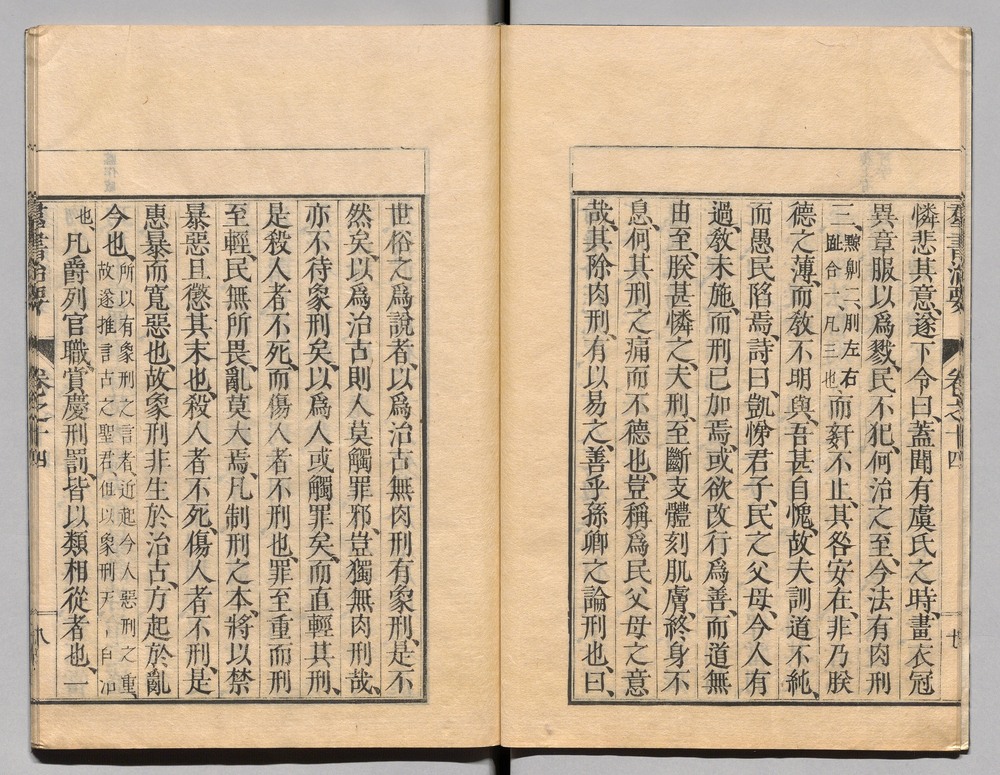 群書治要 卷之十四 七
憐悲其意、遂下令曰、蓋聞有虞氏之時、畫衣冠
異章服以爲戮、民不犯、何治之至、今法有肉刑
三、黥劓二、刖左右趾合一、凡三也而姦不止、其咎安在、非乃朕
德之薄、而敎不明與、吾甚自愧、故夫訓道不純、
而愚民陷焉、詩曰、凱悌君子、民之父母、今人有
過、敎未施、而刑已加焉、或欲改行爲善、而道無
由至、朕甚憐之、夫刑、至斷支體刻肌膚、終身不
息、何其刑之痛而不德也、豈稱爲民父母之意
哉、其除肉刑、有以易之、善乎孫卿之論刑也、曰、
世俗之爲說者、以爲治古無肉刑有象刑、是不
然矣、以爲治古則人莫觸罪邪、豈獨無肉刑哉、
亦不待象刑矣、以爲人或觸罪矣、而直輕其刑、
是殺人者不死、而傷人者不刑也、罪至重而刑
至輕、民無所畏、亂莫大焉、凡制刑之本、將以禁
暴惡、且懲其末也、殺人者不死、傷人者不刑、是
惠暴而寬惡也、故象刑非生於治古、方起於亂
今也、所以有象刑之言者、近起今人惡刑之重、故遂推言古之聖君但以象刑天
也、凡爵列官職、賞慶刑罰、皆以類相從者也、一
群書治要 卷之十四 八